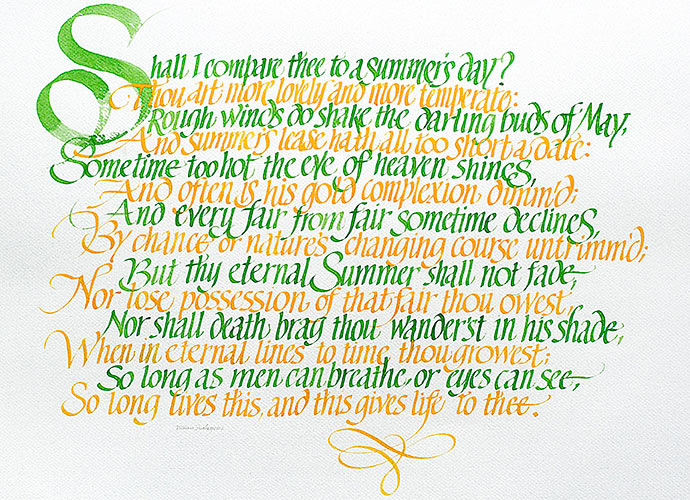 Shall I compare thee to a summer's day?
Thou art more lovely and more temperate:
Rough winds do shake the darling buds of May,
And summer's lease hath all too short a date:
Sometime too hot the eye of heaven shines,
And often is his gold complexion dimm'd;
And every fair from fair sometime declines,
By chance or nature's changing course untrimm'd;
But thy eternal Summer shall not fade,
Nor lose possession of that fair thou owest,
Nor shall death brag thou wanderst in his shade,
When in eternal lines to time thou growest;
So long as men can breathe, or eyes can see,
So long lives this, and this gives life to thee.
William Shakespeare